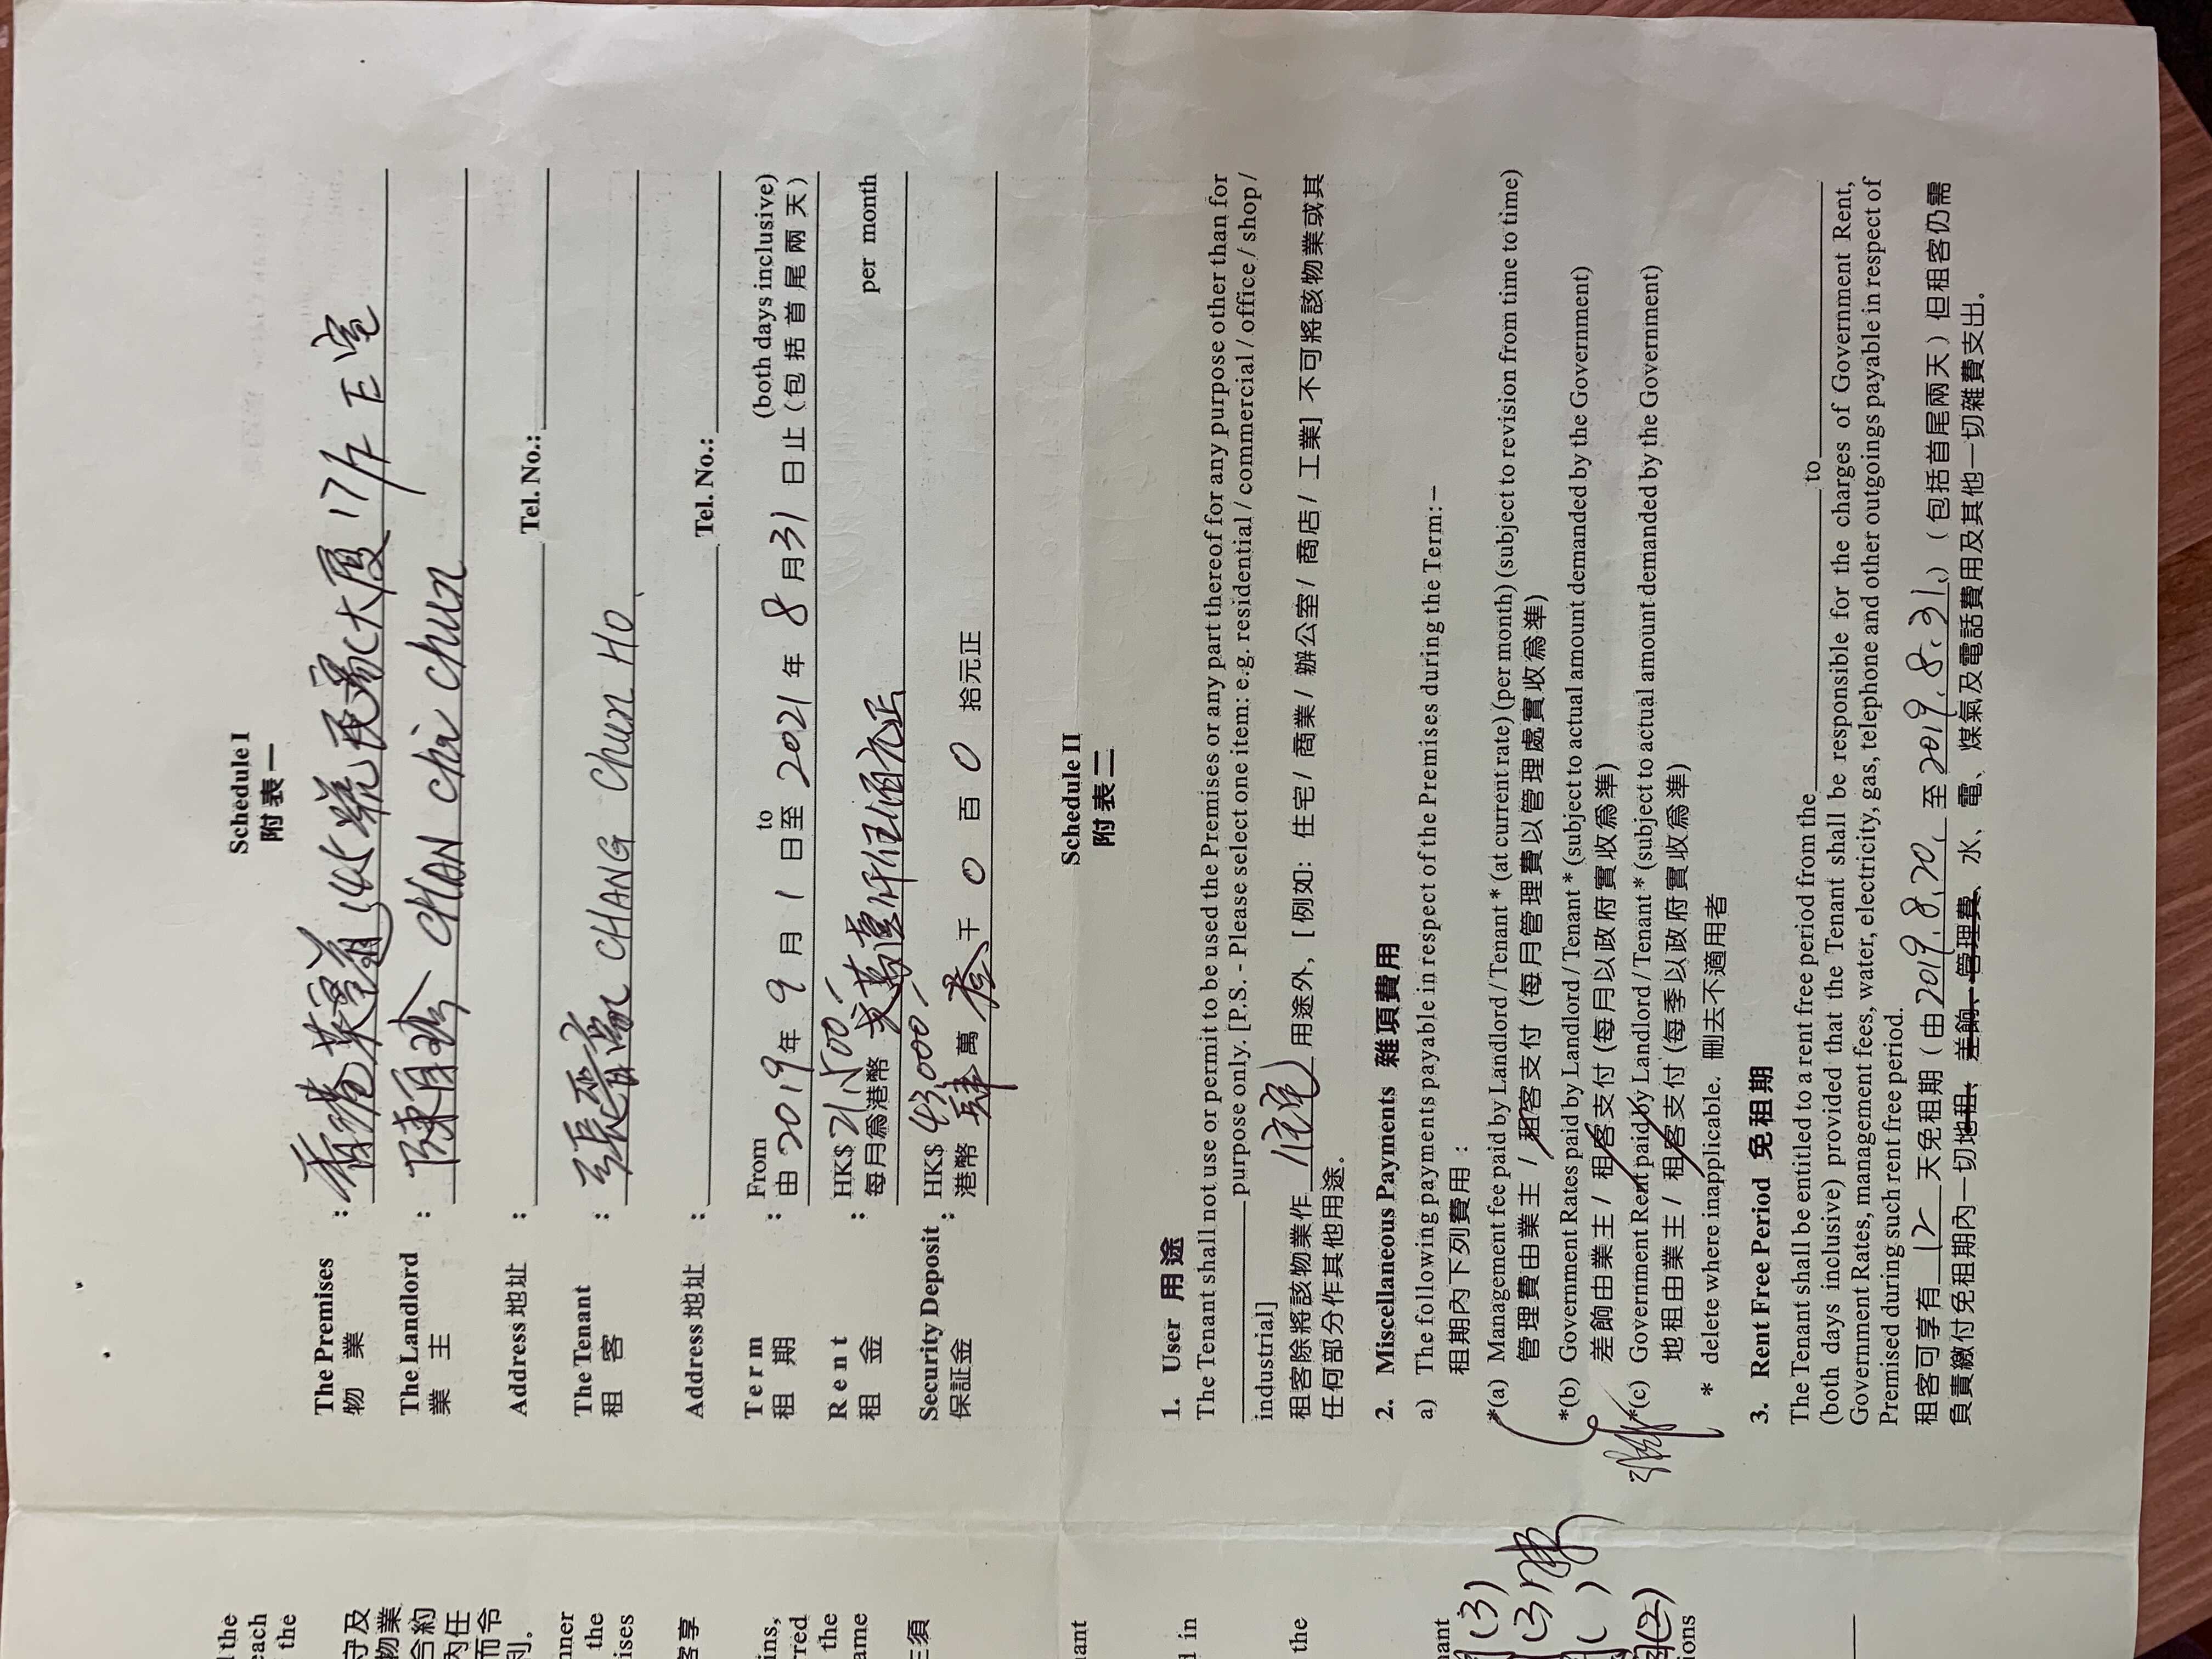 Schedule I
附 表 一
The Premises : 香港英皇道 大廈 17/F E室
物 業
The Landlord : 陳 CHAN chi chun
業 主
Address 地址 : Tel. No.:
The Tenant : 張晉 CHANG Chun HO
租 客
Address 地址 : Tel. No.:
Term : From to (both days inclusive)
租 期 由 2019 年 9 月 1 日至 2021 年 8 月 31 日止 (包 括 首 尾 兩 天)
Rent : HK$ 21,500/- per month
租 金 每月爲港幣 貳萬壹仟伍佰元正
Security Deposit : HK$ 43,000/-
保証金 港幣 肆 萬 叁 千 0 百 0 拾元正
Schedule II
附 表 二
1. User 用途
The Tenant shall not use or permit to be used the Premises or any part thereof for any purpose other than for
purpose only. [P.S. - Please select one item: e.g. residential / commercial / office / shop /
industrial]
租客除將該物業作 住宅 用途外，[例如：住宅/ 商業/ 辦公室/ 商店/ 工業] 不可將該物業或其
任何部分作其他用途．
2. Miscellaneous Payments 雜項費用
a) The following payments payable in respect of the Premises during the Term:–
租期內下列費用：
*(a) Management fee paid by Landlord / Tenant * (at current rate) (per month) (subject to revision from time to time)
管理費由業主 / 租客支付 (每月管理費以管理處實收爲準)
*(b) Government Rates paid by Landlord / Tenant * (subject to actual amount demanded by the Government)
差餉由業主 / 租客支付 (每月以政府實收爲準)
*(c) Government Rent paid by Landlord / Tenant * (subject to actual amount demanded by the Government)
地租由業主 / 租客支付 (每季以政府實收爲準)
* delete where inapplicable. 刪去不適用者
3. Rent Free Period 免租期
The Tenant shall be entitled to a rent free period from the to
(both days inclusive) provided that the Tenant shall be responsible for the charges of Government Rent,
Government Rates, management fees, water, electricity, gas, telephone and other outgoings payable in respect of
Premised during such rent free period.
租客可享有 12 天免租期 (由 2019.8.20. 至 2019.8.31.) (包括首尾兩天) 但租客仍需
負責繳付免租期內一切地租、差餉、管理費、水、電、煤氣及電話費用及其他一切雜費支出．
the
each
the
守及
物業
合約
內任
而令
利。
nner
the
ises
客享
ins,
rred
the
ame
主須
nant
d in
the
nant
(3)
(3)
( )
(2)
ions